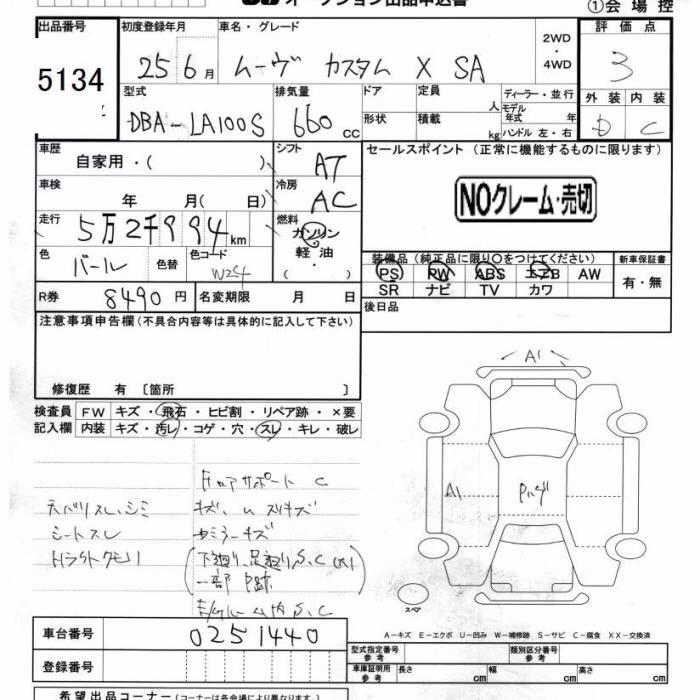 オークション出品申込書
①会場控
出品番号
5134
初度登録年月
25 6月
車名・グレード
ムーヴ カスタム X SA
2WD
・
4WD
評価点
3
外装 内装
D C
型式
DBA-LA100S
排気量
660cc
ドア
形状
定員
人
積載
kg
ディーラー・並行
モデル年式 年
ハンドル 左・右
車歴
自家用・( )
シフト
AT
車検
年 月( 日)
冷房
AC
走行
5万2千994km
燃料
ガソリン
軽油
・( )
色
パール
色替
色コード
W24
R券
8490円
名変期限 月 日
セールスポイント (正常に機能するものに限ります)
NOクレーム・売切
装備品(純正品に限り○をつけてください)
PS PW ABS エアB AW
SR ナビ TV カワ
新車保証書
有・無
後日品
注意事項申告欄(不具合内容等は具体的に記入して下さい)
修復歴 有 〔箇所 〕
検査員
記入欄
FW キズ・飛石・ヒビ割・リペア跡・×要
内装 キズ・汚レ・コゲ・穴・スレ・キレ・破レ
シートスレ
キズ
下廻り、足廻り S、C
一部 P跡
S、C
A1
A1
Pハゲ
スペア
A-キズ E-エクボ U-凹み W-補修跡 S-サビ C-腐食 XX-交換済
車台番号
0251440
登録番号
型式指定番号
参考
類別区分番号
参考
車庫証明用
参考
長さ cm
幅 cm
高さ cm
希望出品コーナー(コーナーは各会場により異なります。)